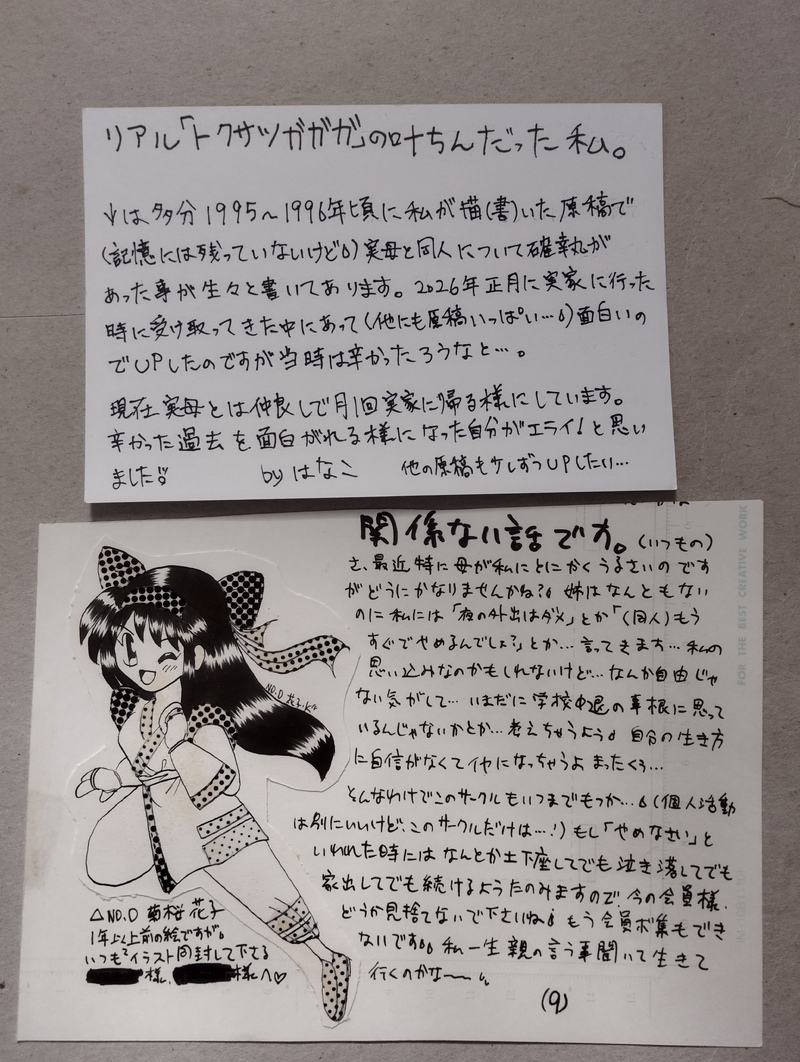 リアル「トクサツガガガ」の叶ちんだった私。
↓は多分1995～1996年頃に私が描(書)いた原稿で
(記憶には残っていないけど💧)実母と同人について確執が
あった事が生々と書いてあります。2026年正月に実家に行った
時に受け取ってきた中にあって(他にも原稿いっぱい…💧)面白いの
でUPしたのですが当時は辛かったろうなと…。
現在実母とは仲良しで月1回実家に帰る様にしています。
辛かった過去を面白がれる様になった自分がエライ!と思い
ました
by はなこ
他の原稿も少しずつUPしたい…
FOR THE BEST CREATIVE WORK
関係ない話です。(いつもの)
さ、最近特に母が私にとにかくうるさいのです
がどうにかなりませんかね?💧 姉はなんともない
のに私には「夜の外出はダメ」とか「(同人)もう
すぐでやめるんでしょ?」とか…言ってきます…私の
思い込みなのかもしれないけど…なんか自由じゃ
ない気がして…いまだに学校中退の事根に思って
いるんじゃないかとか…考えちゃうよう💧 自分の生き方
に自信がなくてイヤになっちゃうよ まったくぅ…
そんなわけでこのサークルもいつまでもつか…💧(個人活動
は別にいいけど、このサークルだけは…!)もし「やめなさい」と
いわれた時にはなんとか土下座してでも泣き落してでも
家出してでも続けるようたのみますので今の会員様、
どうか見捨てないで下さいね💧 もう会員ボ集もでき
ないです💧 私一生親の言う事聞いて生きて
行くのかな～
(9)
NO.0 花子.K
△NO.0 菊桜 花子
1年以上前の絵ですが。
いつもイラスト同封して下さる
様、様へ♡